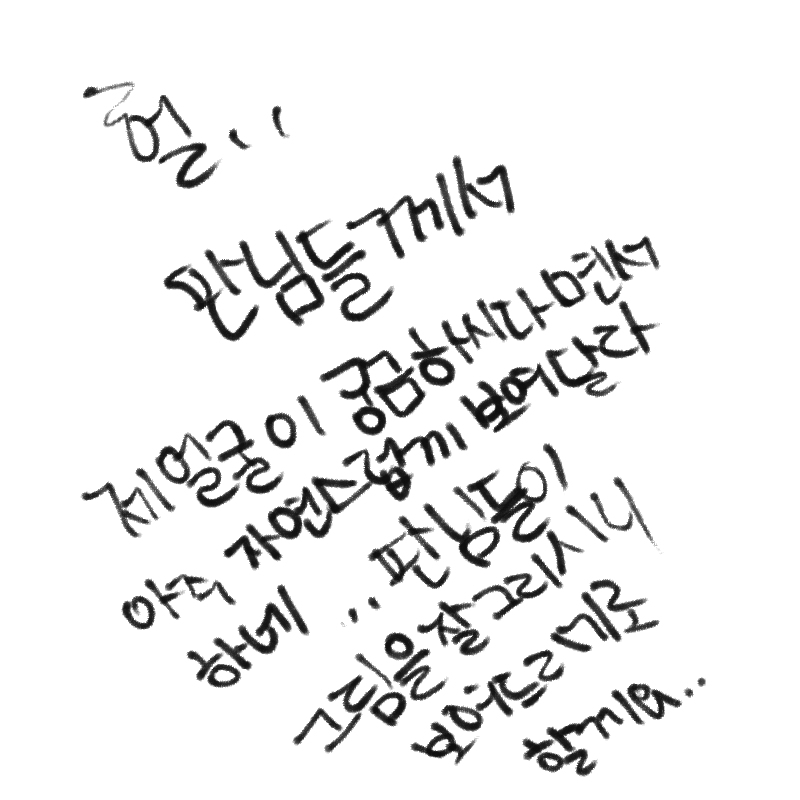 헐..
판님들께서
제 얼굴이 궁금하시다면서
아주 자연스럽게 보여달라
하네 .. 판님들이
그림을 잘 그리시니
보여드리기로
할게요..